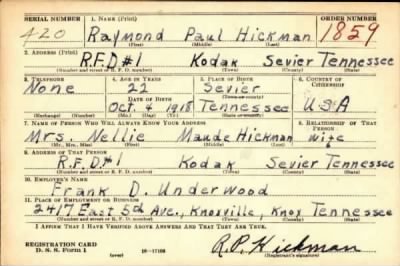 SERIAL NUMBER 1. NAME (Print) ORDER NUMBER
420 Raymond Paul Hickman 1859
(First) (Middle) (Last)
2. ADDRESS (Print)
R.F.D.#1 Kodak Sevier Tennessee
(Number and street or R. F. D. number) (Town) (County) (State)
3. TELEPHONE 4. AGE IN YEARS 5. PLACE OF BIRTH 6. COUNTRY OF CITIZENSHIP
None 22 Sevier
DATE OF BIRTH (Town or county)
Oct. 4 1918 Tennessee USA
(Exchange) (Number) (Mo.) (Day) (Yr.) (State or country)
7. NAME OF PERSON WHO WILL ALWAYS KNOW YOUR ADDRESS 8. RELATIONSHIP OF THAT PERSON
Mrs. Nellie Maude Hickman wife
(Mr., Mrs., Miss) (First) (Middle) (Last)
9. ADDRESS OF THAT PERSON
R.F.D.#1 Kodak Sevier Tennessee
(Number and street or R. F. D. number) (Town) (County) (State)
10. EMPLOYER'S NAME
Frank D. Underwood
11. PLACE OF EMPLOYMENT OR BUSINESS
2417 East 5th Ave., Knoxville, Knox Tennessee
(Number and street or R. F. D. number) (Town) (County) (State)
I AFFIRM THAT I HAVE VERIFIED ABOVE ANSWERS AND THAT THEY ARE TRUE.
REGISTRATION CARD
D. S. S. Form 1 (over) R.P. Hickman
(Registrant's signature)